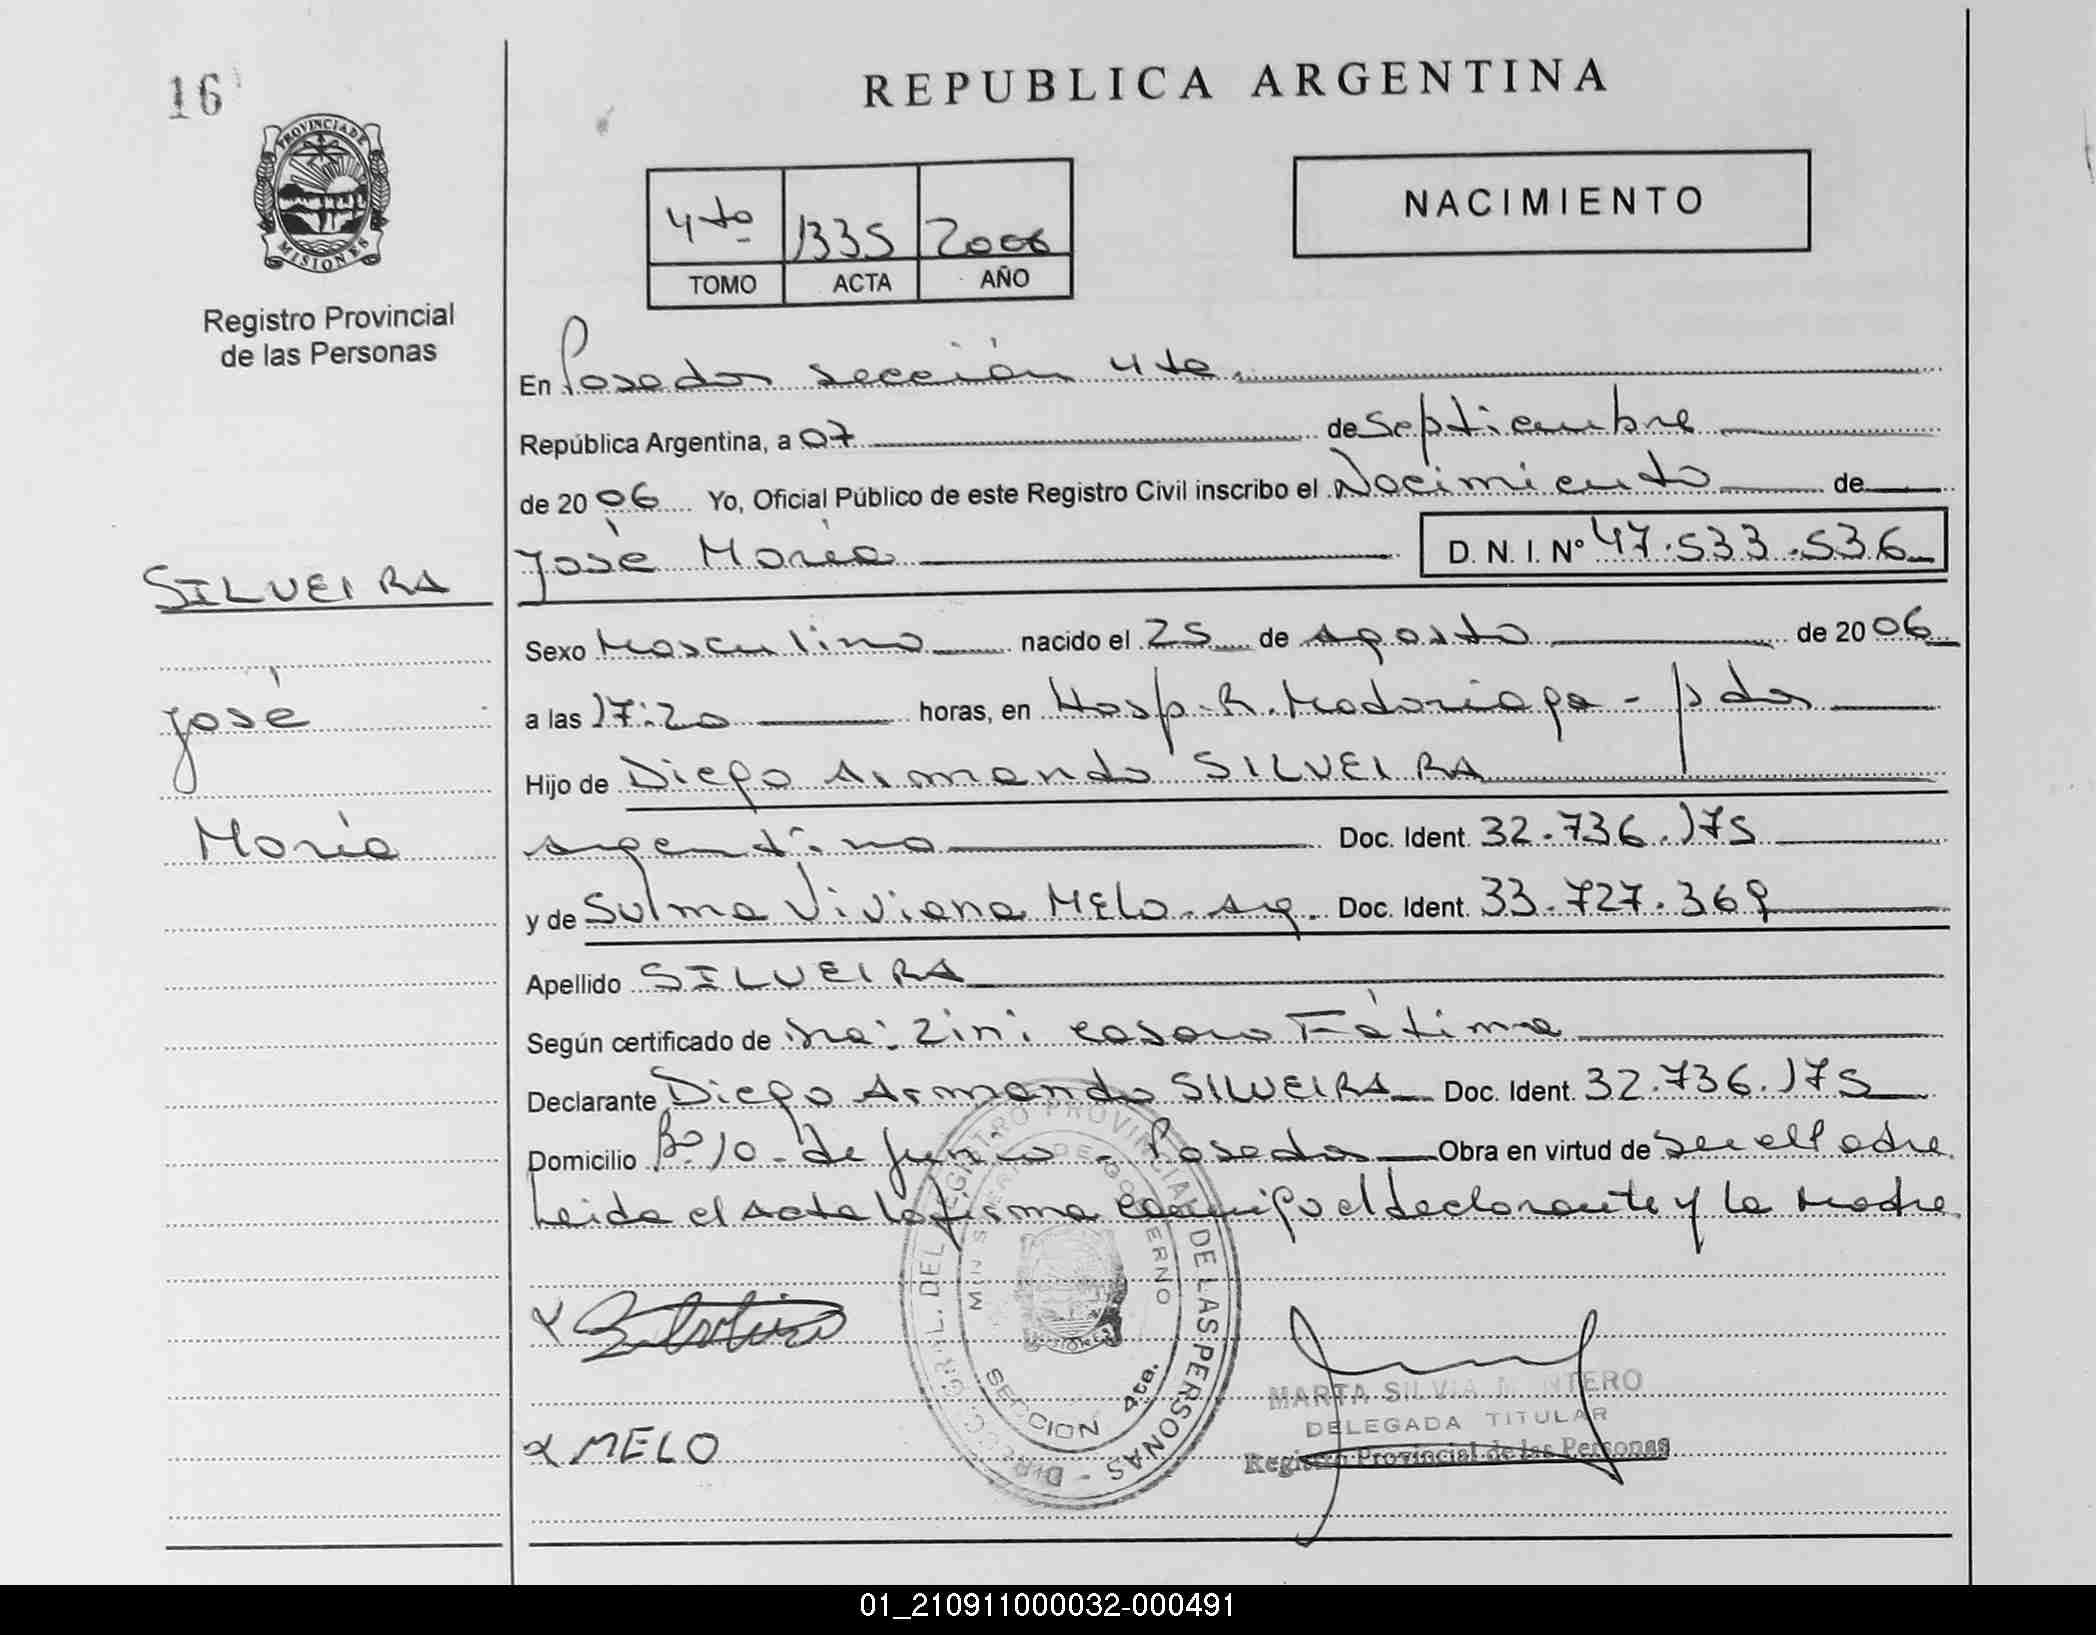 16
REPUBLICA ARGENTINA
PROVINCIA DE
MISIONES
Registro Provincial
de las Personas
4to 1335 2006
TOMO ACTA AÑO
NACIMIENTO
En Posadas sección 4ta
República Argentina, a 07 de Septiembre
de 2006 Yo, Oficial Público de este Registro Civil inscribo el Nacimiento de
José María D. N. I. Nº 47.533.536
SILVEIRA
José
María
Sexo Masculino nacido el 25 de agosto de 2006
a las 17:20 horas, en Hosp. R. Madariaga - Pdas
Hijo de Diego Armando SILVEIRA
argentino Doc. Ident. 32.736.175
y de Sulma Viviana MELO. arg. Doc. Ident. 33.727.369
Apellido SILVEIRA
Según certificado de Casaro Fátima
Declarante Diego Armando SILVEIRA Doc. Ident. 32.736.175
Domicilio Bº 10 de Junio - Posadas Obra en virtud de ser el Padre
Leida el acta la firma conmigo el declarante y la madre
DIRECC. GRAL. DEL REGISTRO PROVINCIAL DE LAS PERSONAS -
MINISTERIO DE GOBIERNO
SECCION 4ta.
MELO
MARTA SILVIA MONTERO
DELEGADA TITULAR
Registro Provincial de las Personas
01_210911000032-000491